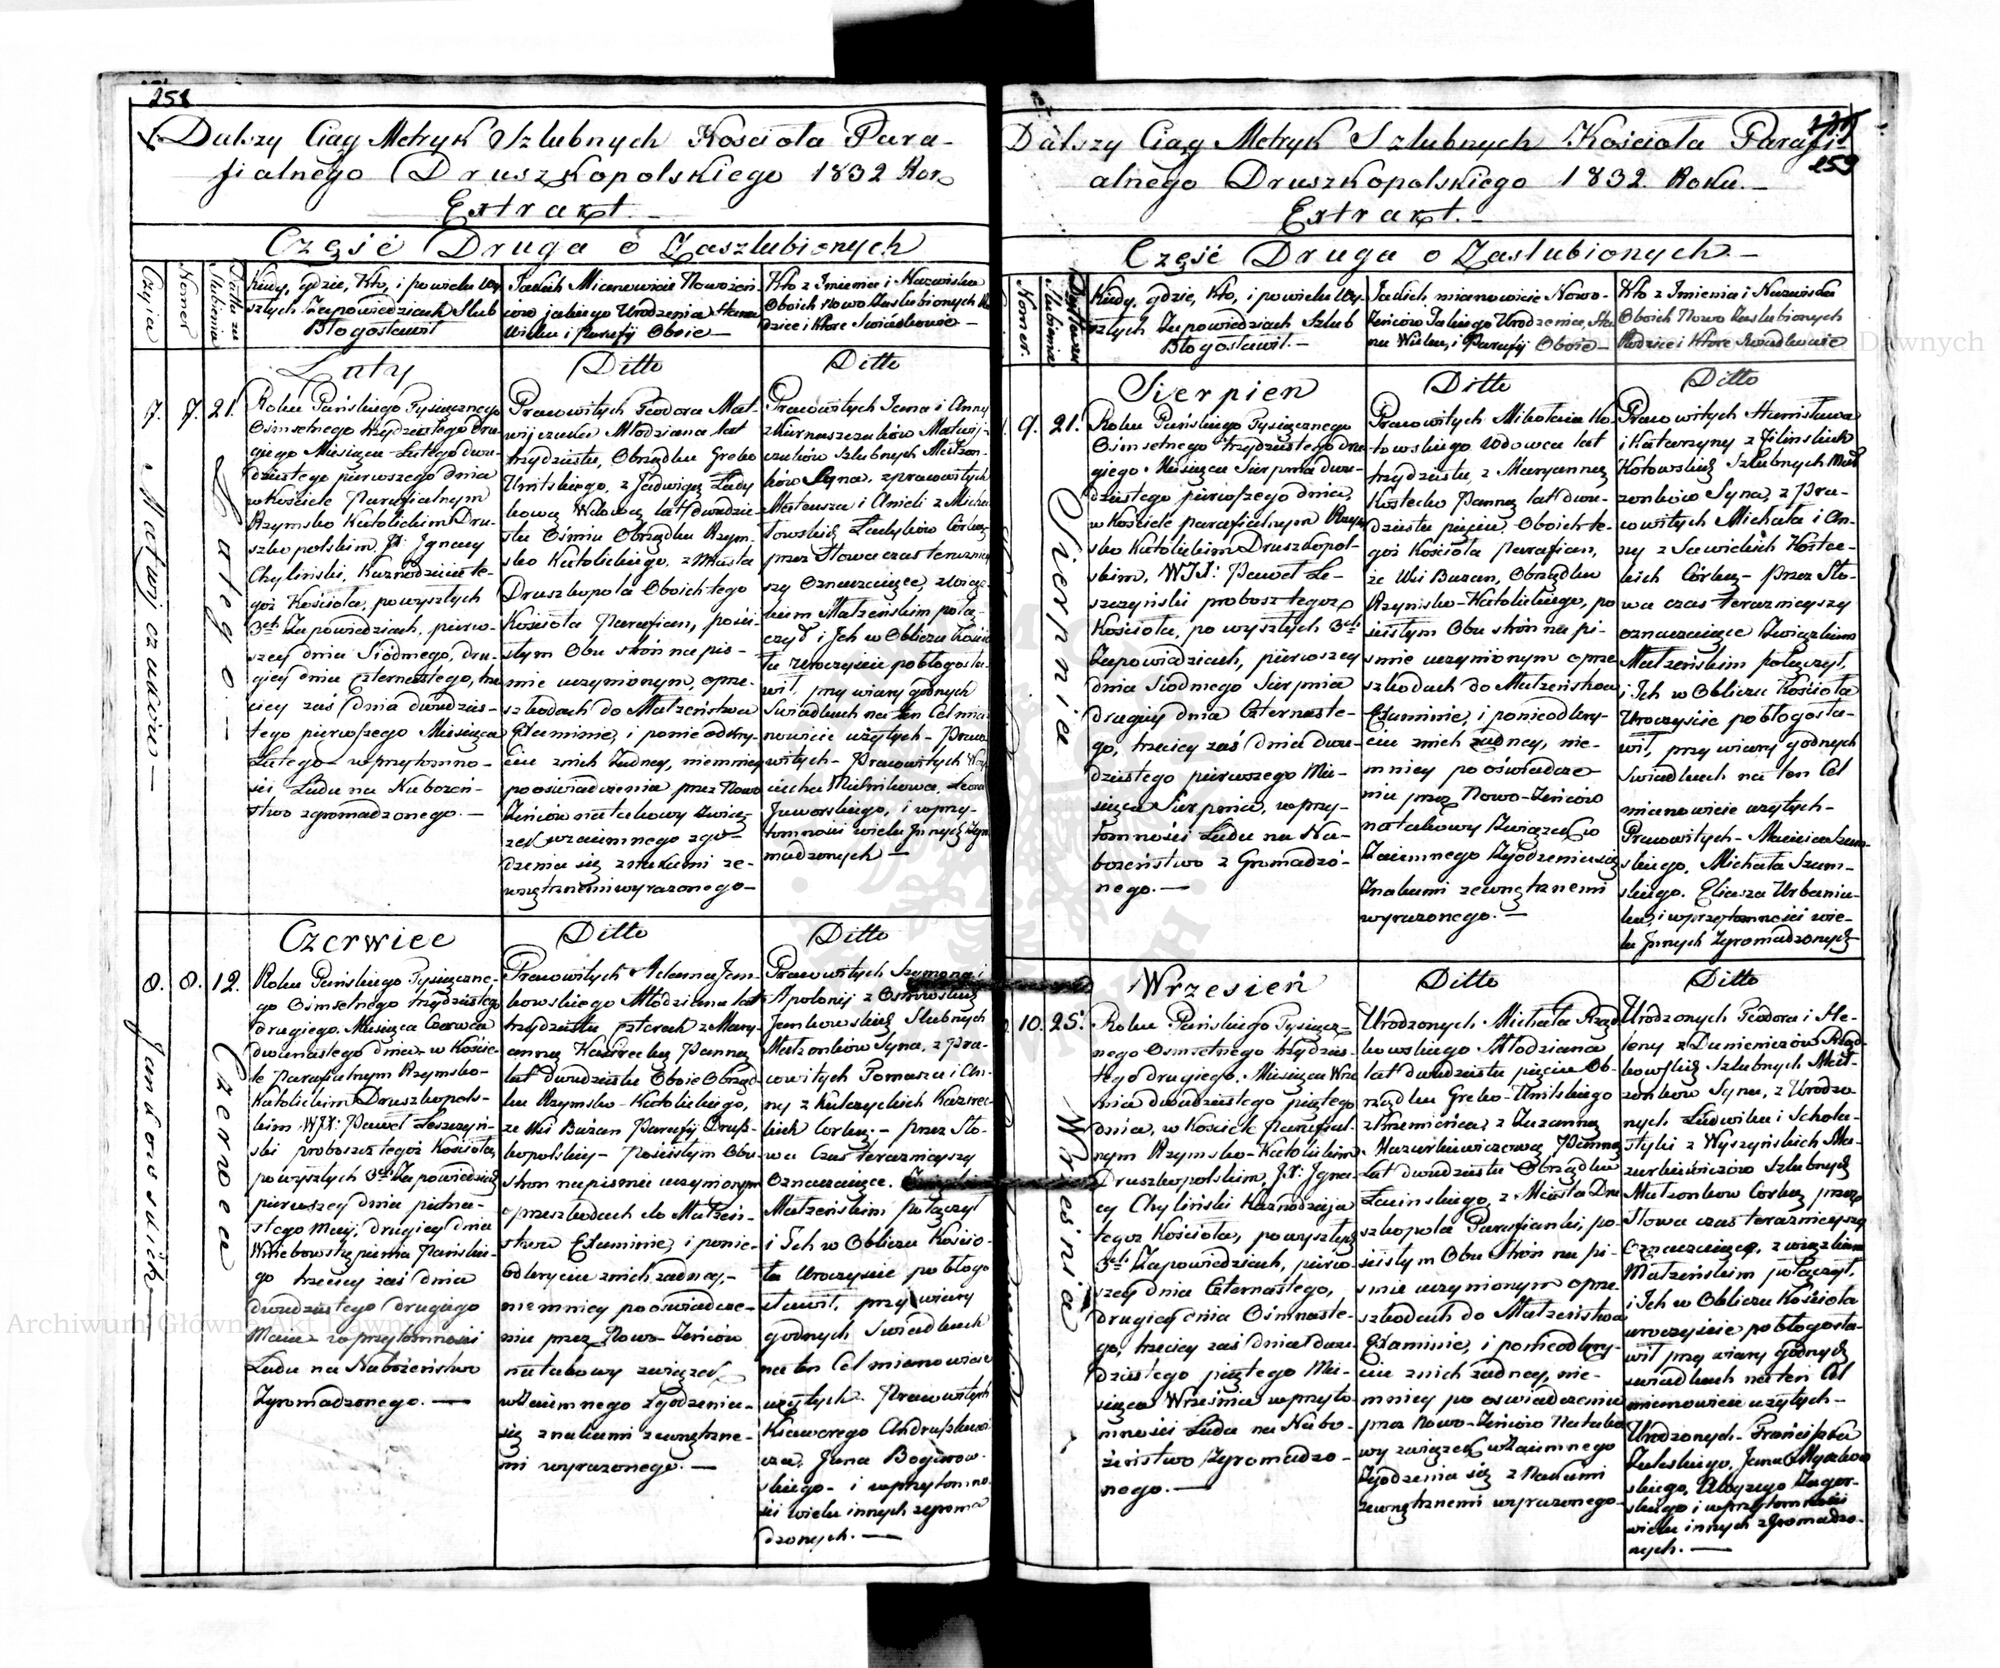 258
Dalszy Ciąg Metryk Szlubnych Kościoła Para-
fialnego Druszkopolskiego 1832 Ro
Extrakt. —
Część Druga o Zaszlubionych
Czyia
Nomer
Data
Slubienia
Kiedy, gdzie, Kto, i powielu wy
szłych Zapowiedziach Slub
Błogosławił
Jakich Mianowicie Nowożeń
ców jakiego Urodzenia Stanu
Wieku i Parafij Oboie —
Kto z Imienia i Nazwiska
Oboich Nowo Zaslubionych Ro
dzice i Które Swiadkowie —
Luty
7.
7.
21.
Matwijczuków —
Lutego. —
Roku Pańskiego Tysiącznego
Osmsetnego trzydziestego dru
giego Miesiąca Lutego dwu-
dziestego pierwszego dnia
w Kościele Parafialnym
Rzymsko Katolickim Dru-
szkopolskim, JX: Ignacy
Chyliński, Kaznodzieia te-
goż Kościoła, po wyszłych
3ch Zapowiedziach, pierw-
szey dnia Siódmego, dru-
giey dnia czternastego, trze
ciey zaś dnia dwudzies-
tego pierwszego Miesiąca
Lutego — w przytomno-
ści Ludu na Nabożeń-
stwo zgromadzonego. —
Ditto
Prawowitych Teodora Mat-
wijczuka Młodziana lat
trzydziestu, Obrządku Greko
Unitskiego, z Jadwigą Lady
kową Wdową lat dwadzie-
stu Ośmiu Obrządku Rzym-
sko Katolickiego, z Miasta
Druszkopola Oboich tego
Kościoła Parafian, po ści-
słym Obu strón na piś-
mie uczynionym, o prze-
szkodach do Małżeństwa
Examinie, i po nie odkry-
ciu z nich żadney, niemniey
po oświadczeniu przez Nowo
Żeńców na takowy Związ-
zek wzaiemnego zgo-
dzenia się znakami ze-
wnętrznemi wyrażonego —
Ditto
Prawowitych Jana i Anny
z Matwij-
czuków Szlubnych Małżon-
ków Syna, z prawowitych
Mateusza i Anieli z Micha
łowskich Ladyków Córkę
przez Słowa czas teraźniey
szy Oznaczaiące, związ-
kiem Małżeńskim połą-
czył i Ich w Obliczu Kości
ła Uroczyście pobłogosła-
wił, przy wiary godnych
Świadkach na ten Cel mia
nowicie użytych — Prawo-
witych — Pracowitych Woy
ciecha Mielnikowa, Leona
Jaworskiego, i w przy-
tomności wielu Innych Zgro
madzonych —
Czerwiec
8.
8.
12.
Jankowskich —
Czerwca
Roku Pańskiego Tysiączne-
go Osmsetnego trzydziestego
drugiego, Miesiąca Czerwca
dwunastego dnia w Koście-
le Parafialnym Rzymsko-
Katolickim Druszkopols-
kim WJX: Paweł Leszczyń-
ski proboszcz tegoż Kościoła,
po wyszłych 3ch Zapowiedziach
pierwszey dnia piętna-
stego Maij, drugiey dnia
Wniebowstąpienia Pańskie-
go trzeciey zaś dnia
dwudziestego drugiego
Maia w przytomności
Ludu na Nabożeństwo
Zgromadzonego. —
Ditto
Prawowitych Adama Jan-
kowskiego Młodziana lat
trzydziestu czterech z Mary-
anną Panną
lat dwudziestu Oboie Obrząd-
ku Rzymsko-Katolickiego,
ze Wsi Bużan Parafij Drusz-
kopolskiey — Pościsłym Obu
stron na pismie uczynionym
o przeszkodach do Małżeń-
stwa Examinie, i po nie-
odkryciu z nich żadney, —
niemniey po oświadcze-
niu przez Nowo-Żeńców
na takowy związek
wzaiemnego Zgodzenia-
się znakami zewnętrzne-
mi wyrażonego. —
Ditto
Prawowitych Szymona i
Apolonij z Ostrowskich
Jankowskich Slubnych
Małżonków Syna, z Pra-
cowitych Tomasza i An-
ny z Kulczyckich
kich Córkę — przez Sło-
wa Czas teraźnieyszy
Oznaczaiące. Związkiem
Małżeńskim połączył
i Ich w Obliczu Kościo-
ła Uroczyście pobłogo
sławił, przy wiary
godnych Swiadkach
na ten Cel mianowicie
użytych — Prawowitych
Ksawerego Andruszkiewi
cza, Jana Boguszow-
skiego — i w przytomno-
ści wielu innych zgroma
dzonych. —
259
Dalszy Ciąg Metryk Szlubnych Kościoła Parafi-
alnego Druszkopolskiego 1832. Roku. —
Extrakt. —
Część Druga o Zaslubionych. —
Nomer.
Slubienia
Kiedy, gdzie, Kto, i powielu wy-
szłych Zapowiedziach Szlub
Błogosławił. —
Jakich mianowicie Nowo-
Żeńców Jakiego Urodzenia, Sta
nu Wieku, i Parafij Oboie —
Kto z Imienia i Nazwiska
Oboich Nowo Zaslubionych
Rodzice i Które Swiadkowie
Sierpień
9.
21.
Sierpnia
Roku Pańskiego Tysiącznego
Osmsetnego trzydziestego dru
giego Miesiąca Sierpnia dwu-
dziestego pierwszego dnia,
w Kościele parafialnym Rzym
sko Katolickim Druszkopol-
skim, WJX: Paweł Le-
szczyński proboszcz tegoż
Kościoła, po wyszłych 3ch
Zapowiedziach, pierwszey
dnia Siódmego Sierpnia
drugiey dnia Czternaste-
go, trzeciey zaś dnia dwu-
dziestego pierwszego Mie-
siąca Sierpnia, w przy-
tomności Ludu na Na-
bożeństwo z Gromadzo-
nego. —
Ditto
Prawowitych Mikołaia Ko-
towskiego Wdowca lat
trzydziestu, z Maryanną
Kostecką Panną lat dwu-
dziestu pięciu Oboich te-
goż Kościoła parafian,
ze Wsi Buzan, Obrządku
Rzymsko-Katolickiego, po
ścisłym Obu strón na pi-
śmie uczynionym o prze
szkodach do Małżeństwa
Examinie, i po nieodkry-
ciu z nich żadney, nie-
mniey po oświadcze-
niu przez Nowo-Żeńców
na takowy Związek w
Zaiemnego Zgodzenia się
Znakami zewnętrznemi
wyrażonego. —
Ditto
Prawowitych Stanisława
i Katarzyny z Jilinskich
Kotowskich Szlubnych Mał
żonków Syna, z Pra-
wowitych Michała i An-
ny z Sawickich Kostec-
kich Córkę — przez Sło-
wa czas teraznieyszy
oznaczaiące Związkiem
Małżeńskim połączył,
i Ich w Obliczu Kościoła
Uroczyście pobłogosła-
wił, przy wiary godnych
Swiadkach na ten Cel
mianowicie użytych —
Prawowitych — Macieia Szum-
skiego, Michała Szum-
skiego, Eliasza Urbaniu-
ka, i w przytomności wie-
lu Innych Zgromadzonych —
Wrzesień
10.
25.
Września
Roku Pańskiego Tysiącz-
nego Osmsetnego trzydzies-
tego drugiego, Miesiąca Wrze
śnia dwudziestego piątego
dnia, w Kościele Parafial-
nym Rzymsko-Katolickim
Druszkopolskim, J.X: Igna-
cy Chyliński Kaznodzieja
tegoż Kościoła, powyszłych
3ch Zapowiedziach, pierw-
szey dnia Czternastego,
drugiey dnia Ośmnaste-
go, trzeciey zaś dnia dwu-
dziestego piątego Mie-
siąca Września w przyto-
mności Ludu na Nabo-
żeństwo Zgromadzo-
nego. —
Ditto
Urodzonych Michała Rząd
kowskiego Młodziana
lat dwudziestu pięciu Ob-
rządku Greko-Unitskiego
z Krzemieńca, z Zuzanną
Mazurkiewiczową Panną
Lat dwudziestu Obrządku
Łacińskiego, z Miasta Dru
szkopola Parafianki, po-
ścisłym Obu strón na pi-
śmie uczynionym o prze-
szkodach do Małżeństwa
Examinie, i po nieodkry-
ciu z nich żadney, nie-
mniey po oswiadczeniu
przez Nowo-Żeńców na tako
wy związek wzaiemnego
Zgodzenia się z Nakami
zewnętrznemi wyrażonego —
Ditto
Urodzonych Teodora i He-
leny z Rząd-
kowskich Szlubnych Mał-
żonków Syna, z Urodzo-
nych Ludwika i Schola-
styki z Wyszyńskich Ma-
zurkiewiczów Szlubnych
Małżonków Córkę przez
Słowa czas teraźnieyszy
Oznaczaiące, z wiązkiem
Małżeńskim połączył,
i Ich w Obliczu Kościoła
uroczyście pobłogosła-
wił przy wiary godnych
swiadkach na ten Cel
mianowicie użytych —
Urodzonych — Franciszka
Zaleskiego, Jana
skiego, Aloyzego Zagór-
skiego i w przytomności
wielu innych zgromadzo-
nych. —
Archiwum Główne Akt Dawnych